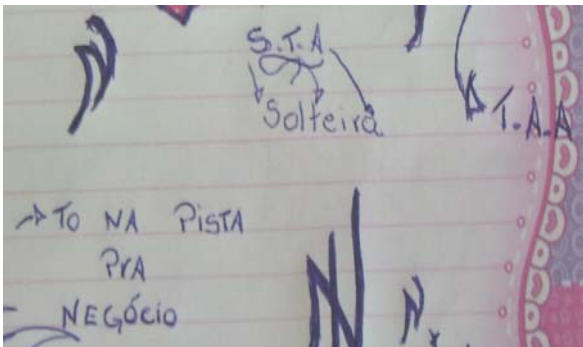 S.T.A
Solteira
T.A.A
→ TO NA PISTA
PrA
NEGÓCIO
N
N